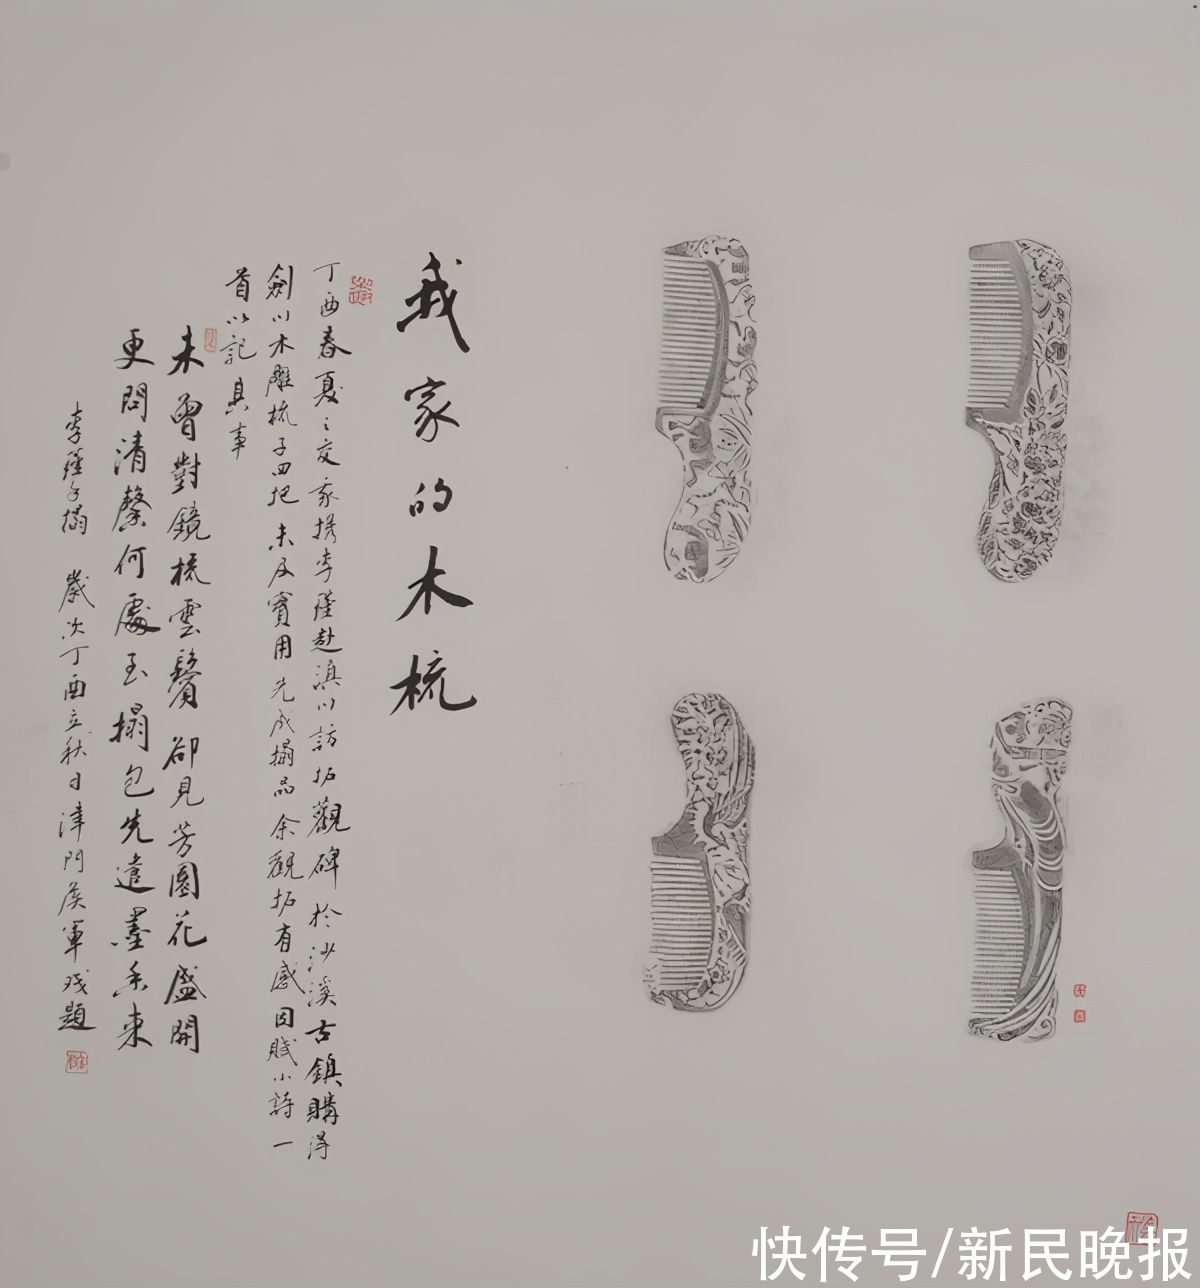 我家的木梳
丁酉春夏之交家携李瑾赴滇川訪拓觀碑於沙溪古鎮購得
劍川木雕梳子四把未及實用先成搨品余觀拓有感因賦小詩一
首以記其事
未曾對鏡梳雲鬢卻見芳園花盛開
更問清馨何處至搨包先遣墨香來
李瑾手搨 歲次丁酉立秋日津門侯軍題
快传号/新民晚报